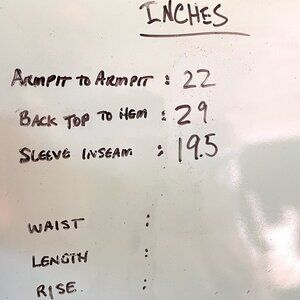 INCHES
ARMPIT TO ARMPIT : 22
BACK TOP TO HEM : 29
SLEEVE INSEAM : 19.5
WAIST :
LENGTH :
RISE :